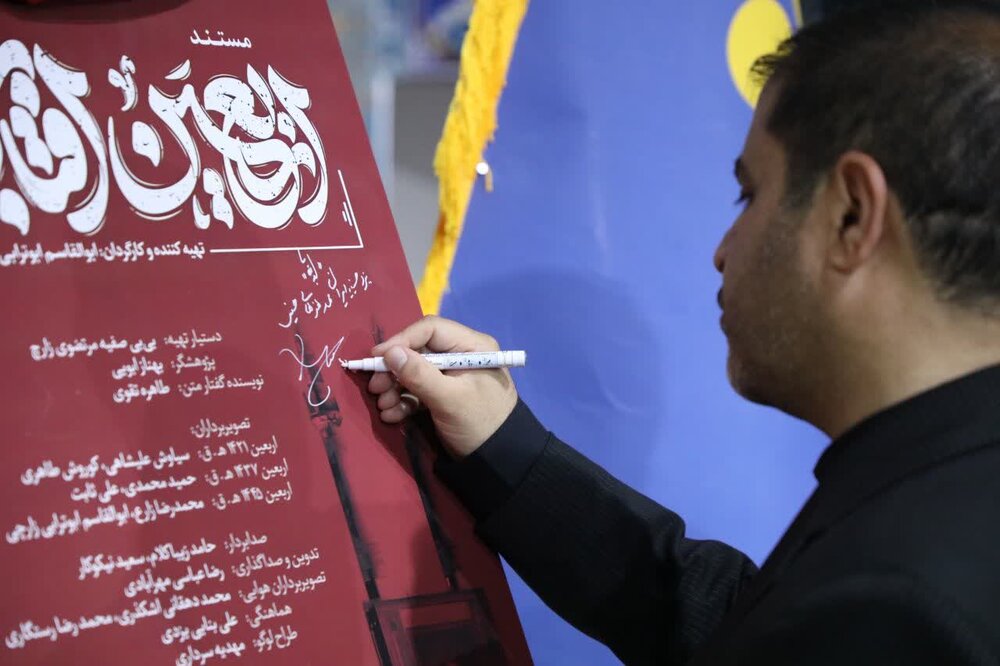 مستند
اربعین و آفتاب
تهیه کننده و کارگردان: ابوالقاسم ابوترابی
دستیار تهیه: بی بی صفیه مرتضوی زارچ
پژوهشگر: بهناز ایوبی
نویسنده گفتار متن: طاهره تقوی
تصویربرداران:
اربعین ۱۴۲۱ ه‍.ق: سیاوش علیشاهی، کوروش طاهری
اربعین ۱۴۳۷ ه‍.ق: حمید محمدی، علی ثابت
اربعین ۱۴۴۵ ه‍.ق: محمدرضا زارع، ابوالقاسم ابوترابی زارچی
صدابردار: حامد زیباکلام، سعید نیکوکار
تدوین و صداگذاری: رضا عباسی مهرآبادی
تصویربرداران هوایی: محمد دهقانی اشکذری، محمد رضا رستگاری
هماهنگی: علی بنایی یزدی
طراح لوگو: مهدیه سرداری